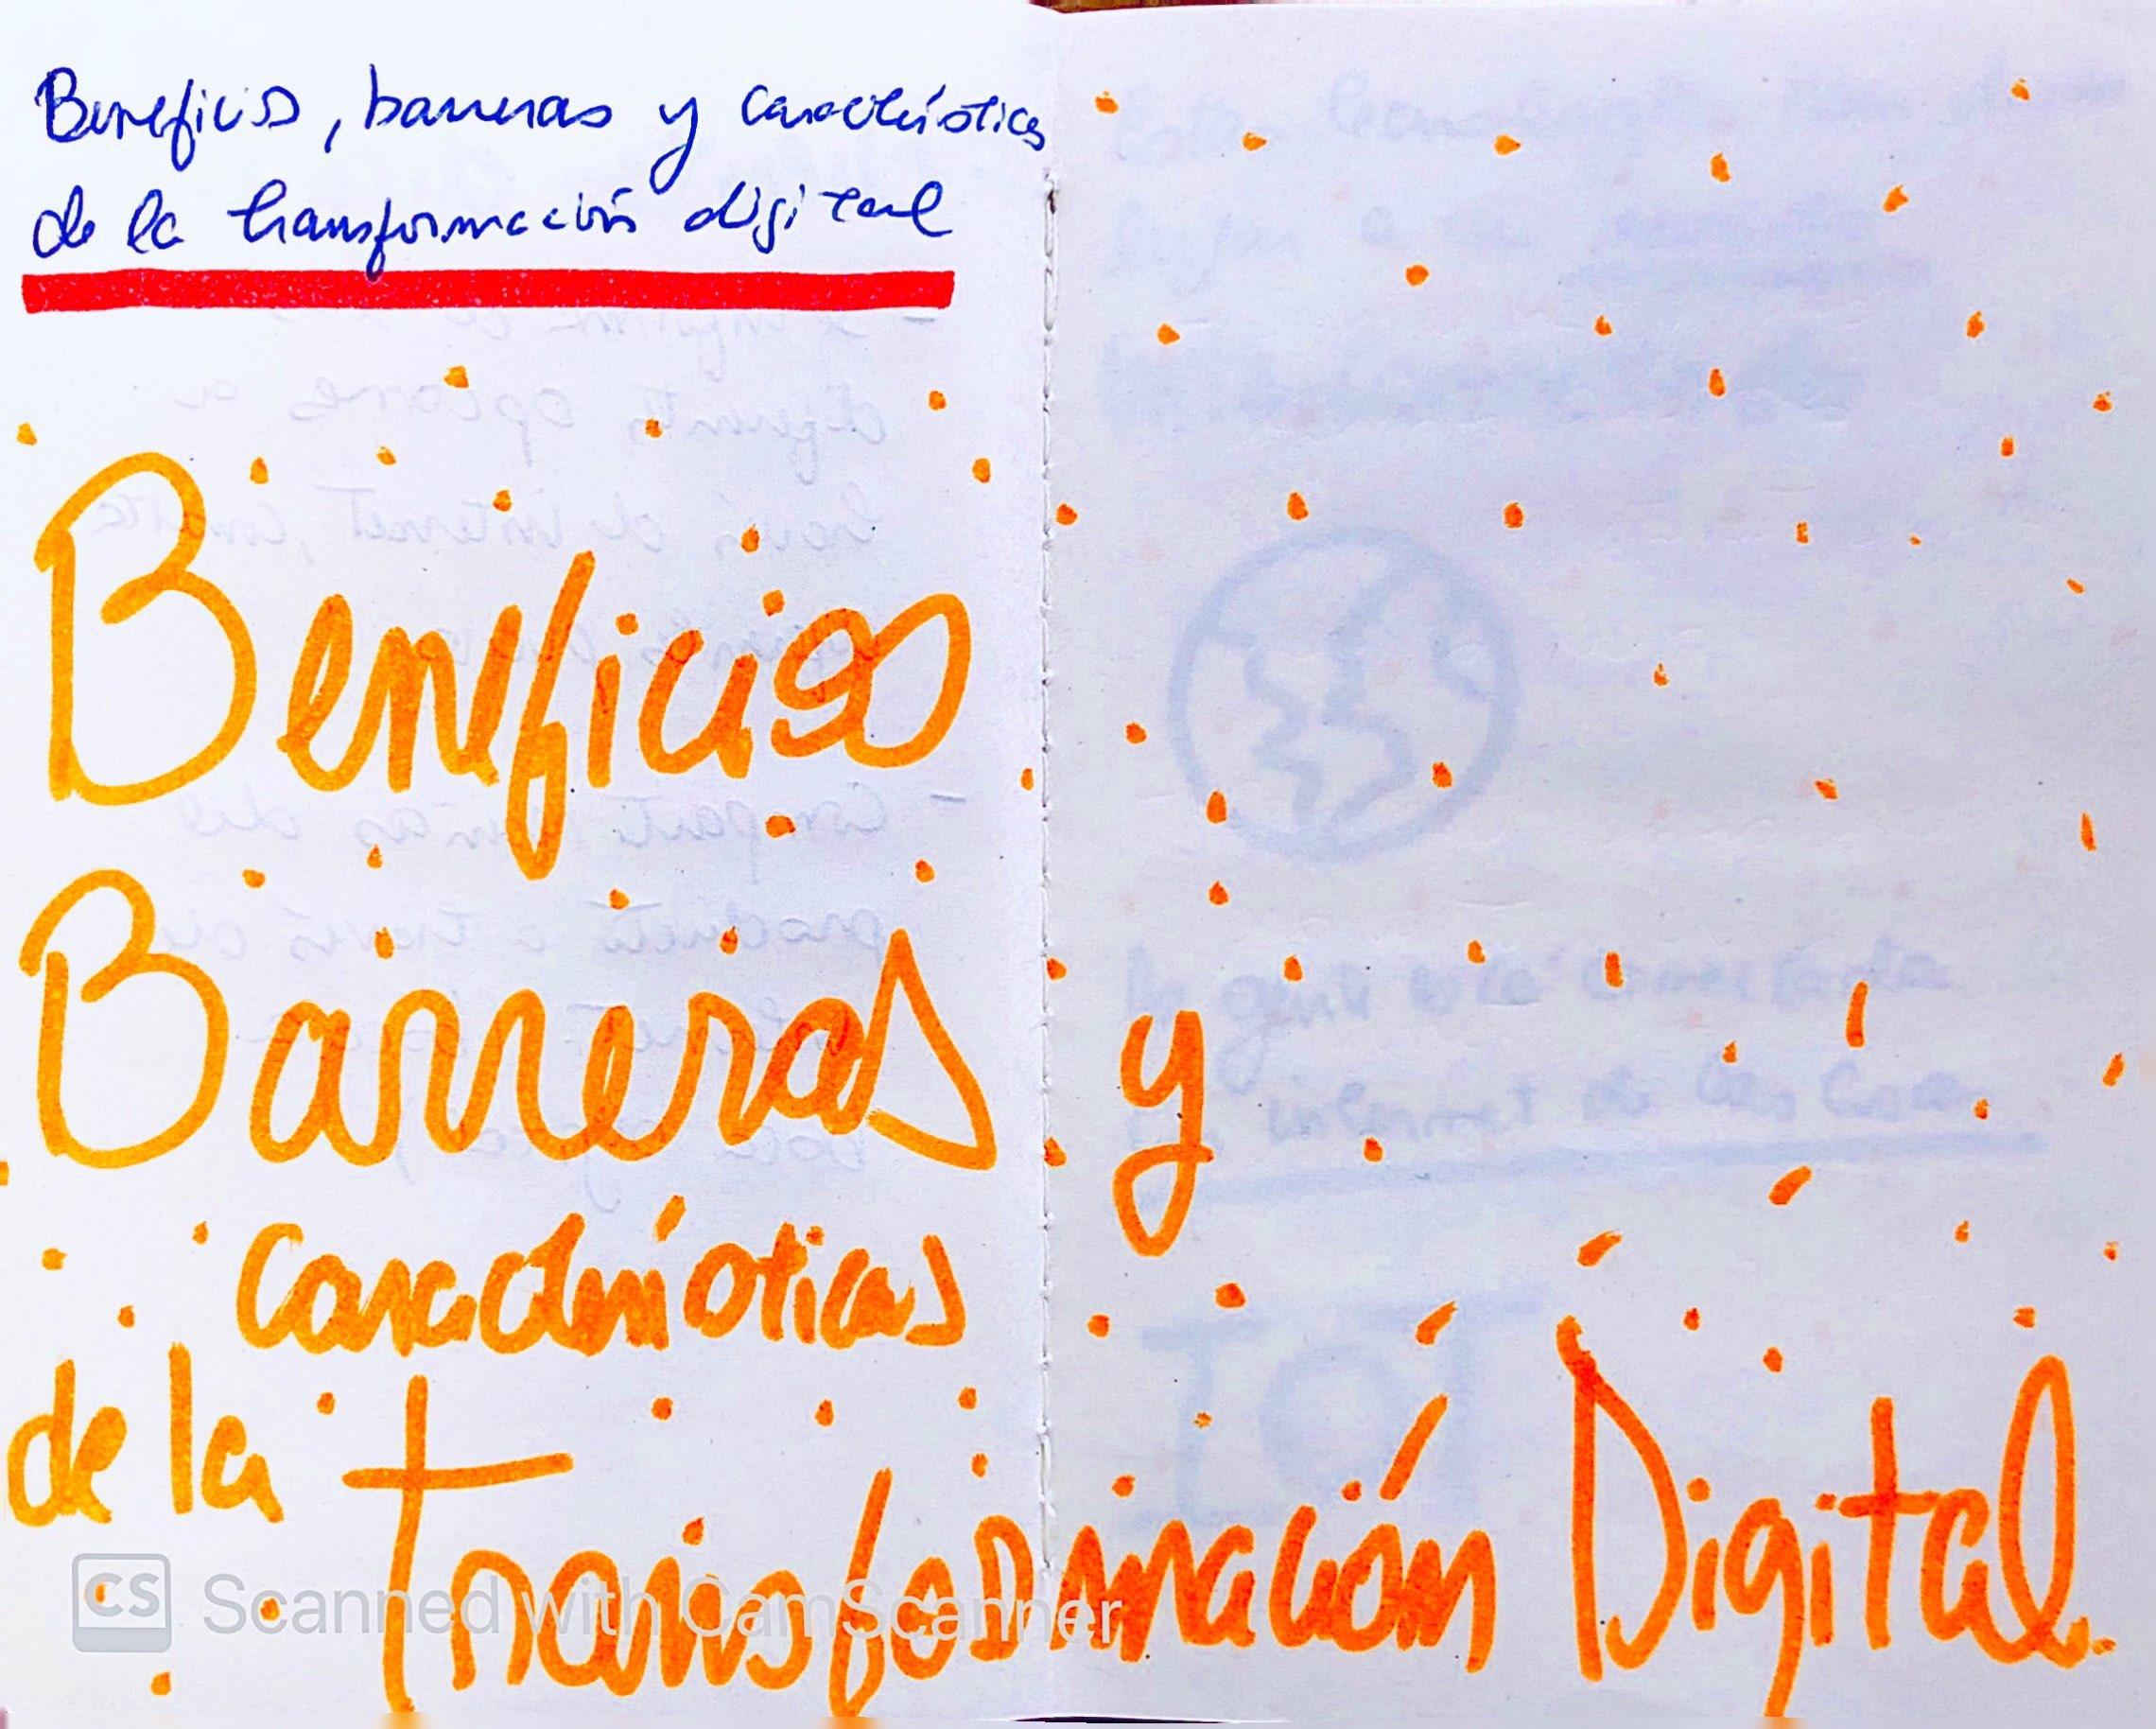 Beneficios, barreras y características
de la transformación digital
Beneficios
Barreras y
características
de la Transformación Digital.
CS Scanned with CamScanner